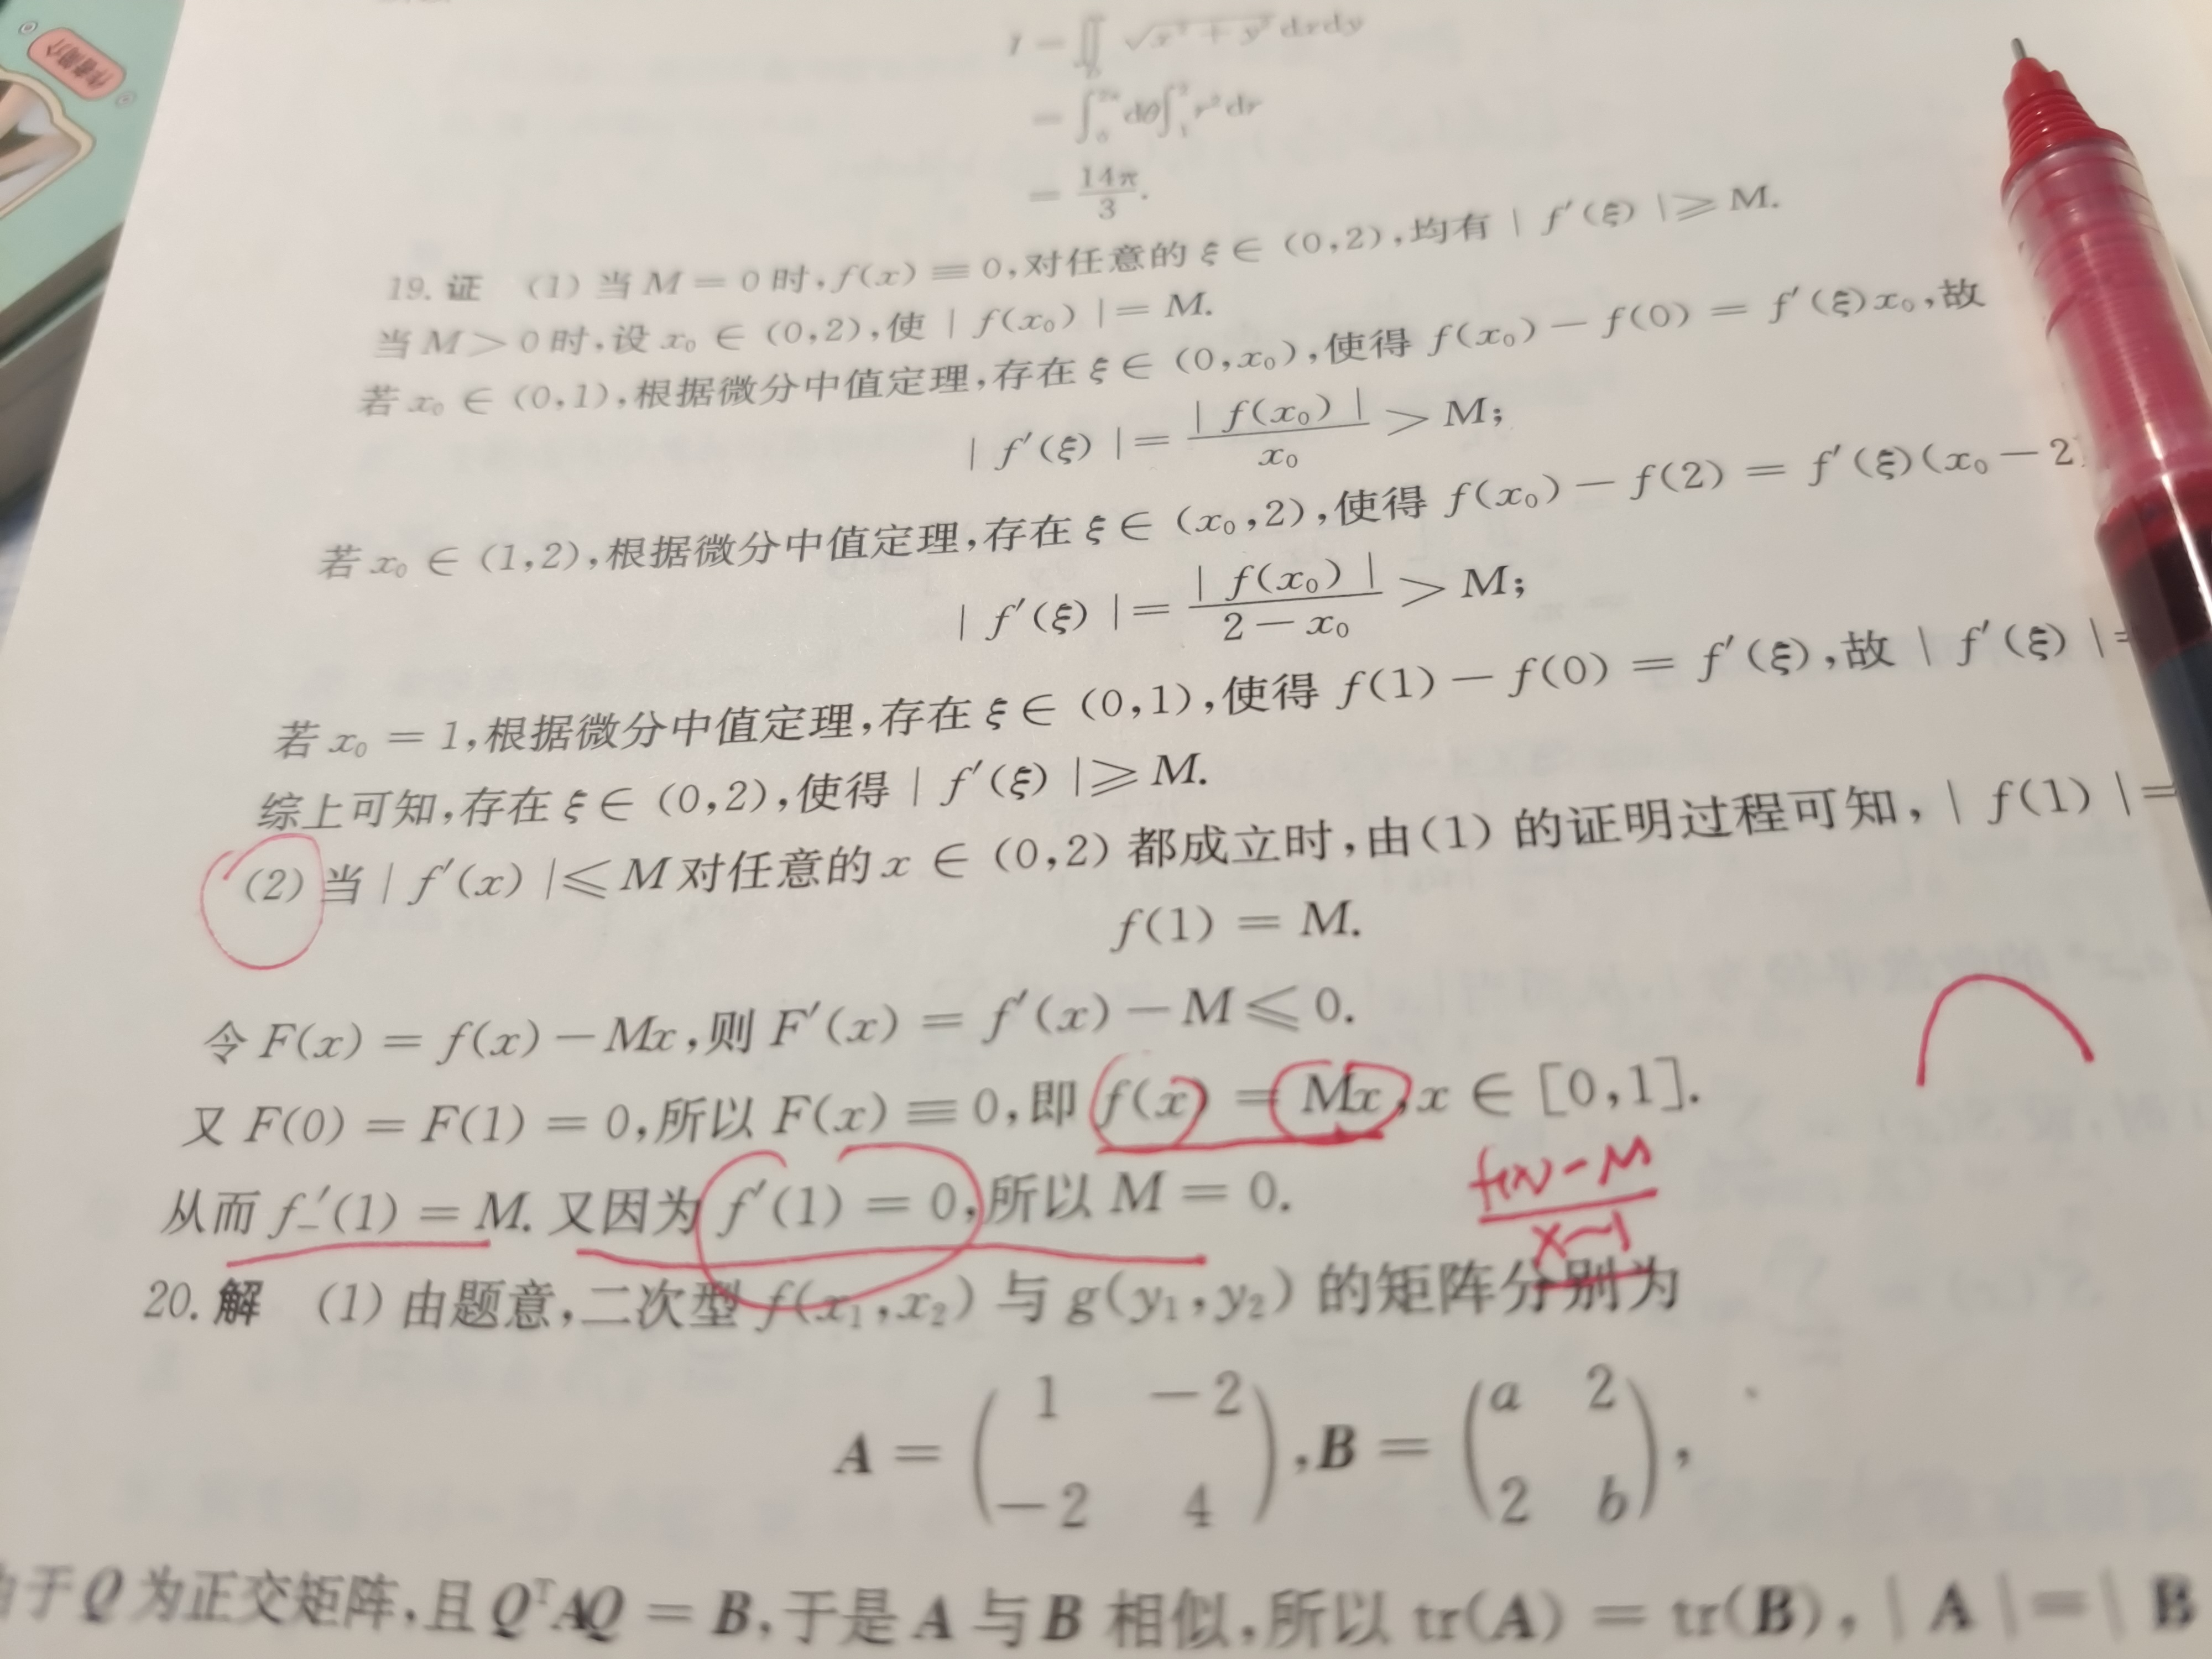 作者简介
I = ∬_D √(x² + y²) dxdy
= ∫₀^{2π} dθ ∫₁² r² dr
= 14π/3.
19. 证 (1) 当 M = 0 时, f(x) ≡ 0, 对任意的 ξ ∈ (0,2), 均有 | f′(ξ) | ⩾ M.
当 M > 0 时, 设 x₀ ∈ (0,2), 使 | f(x₀) | = M.
若 x₀ ∈ (0,1), 根据微分中值定理, 存在 ξ ∈ (0,x₀), 使得 f(x₀) − f(0) = f′(ξ)x₀, 故
| f′(ξ) | = | f(x₀) | / x₀ > M;
若 x₀ ∈ (1,2), 根据微分中值定理, 存在 ξ ∈ (x₀,2), 使得 f(x₀) − f(2) = f′(ξ)(x₀ − 2)
| f′(ξ) | = | f(x₀) | / (2 − x₀) > M;
若 x₀ = 1, 根据微分中值定理, 存在 ξ ∈ (0,1), 使得 f(1) − f(0) = f′(ξ), 故 | f′(ξ) | =
综上可知, 存在 ξ ∈ (0,2), 使得 | f′(ξ) | ⩾ M.
(2) 当 | f′(x) | ⩽ M 对任意的 x ∈ (0,2) 都成立时, 由(1) 的证明过程可知, | f(1) | =
f(1) = M.
令 F(x) = f(x) − Mx, 则 F′(x) = f′(x) − M ⩽ 0.
又 F(0) = F(1) = 0, 所以 F(x) ≡ 0, 即 f(x) = Mx, x ∈ [0,1].
从而 f₋′(1) = M. 又因为 f′(1) = 0, 所以 M = 0.
f(x) − M / x − 1
20. 解 (1) 由题意, 二次型 f(x₁,x₂) 与 g(y₁,y₂) 的矩阵分别为
A = ( 1 −2 ; −2 4 ), B = ( a 2 ; 2 b ),
由于 Q 为正交矩阵, 且 QᵀAQ = B, 于是 A 与 B 相似, 所以 tr(A) = tr(B), | A | = | B